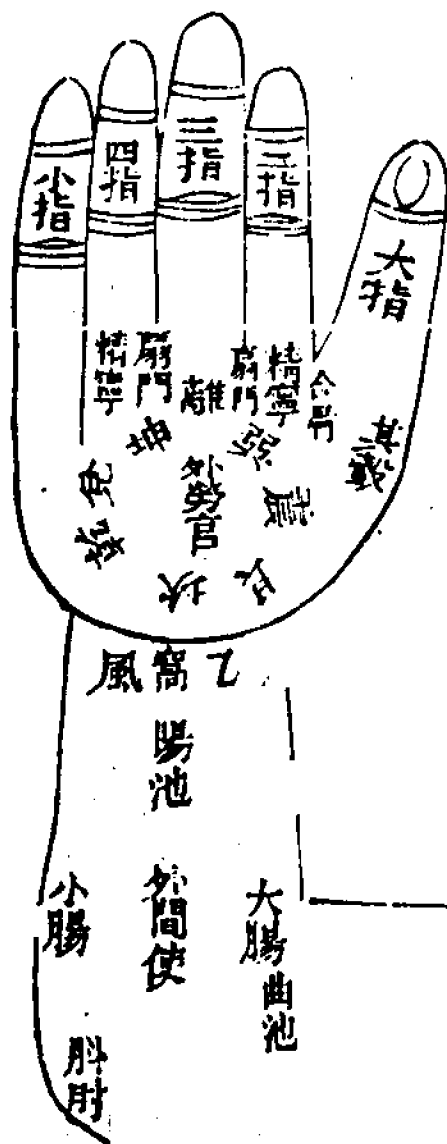 小指
四指
三指
二指
大指
精寧
扇門
離
扇門
精寧
坤
巽
兌
外勞宮
震
坎
艮
乙窩風
陽池
小腸
外間使
大腸
曲池
肘